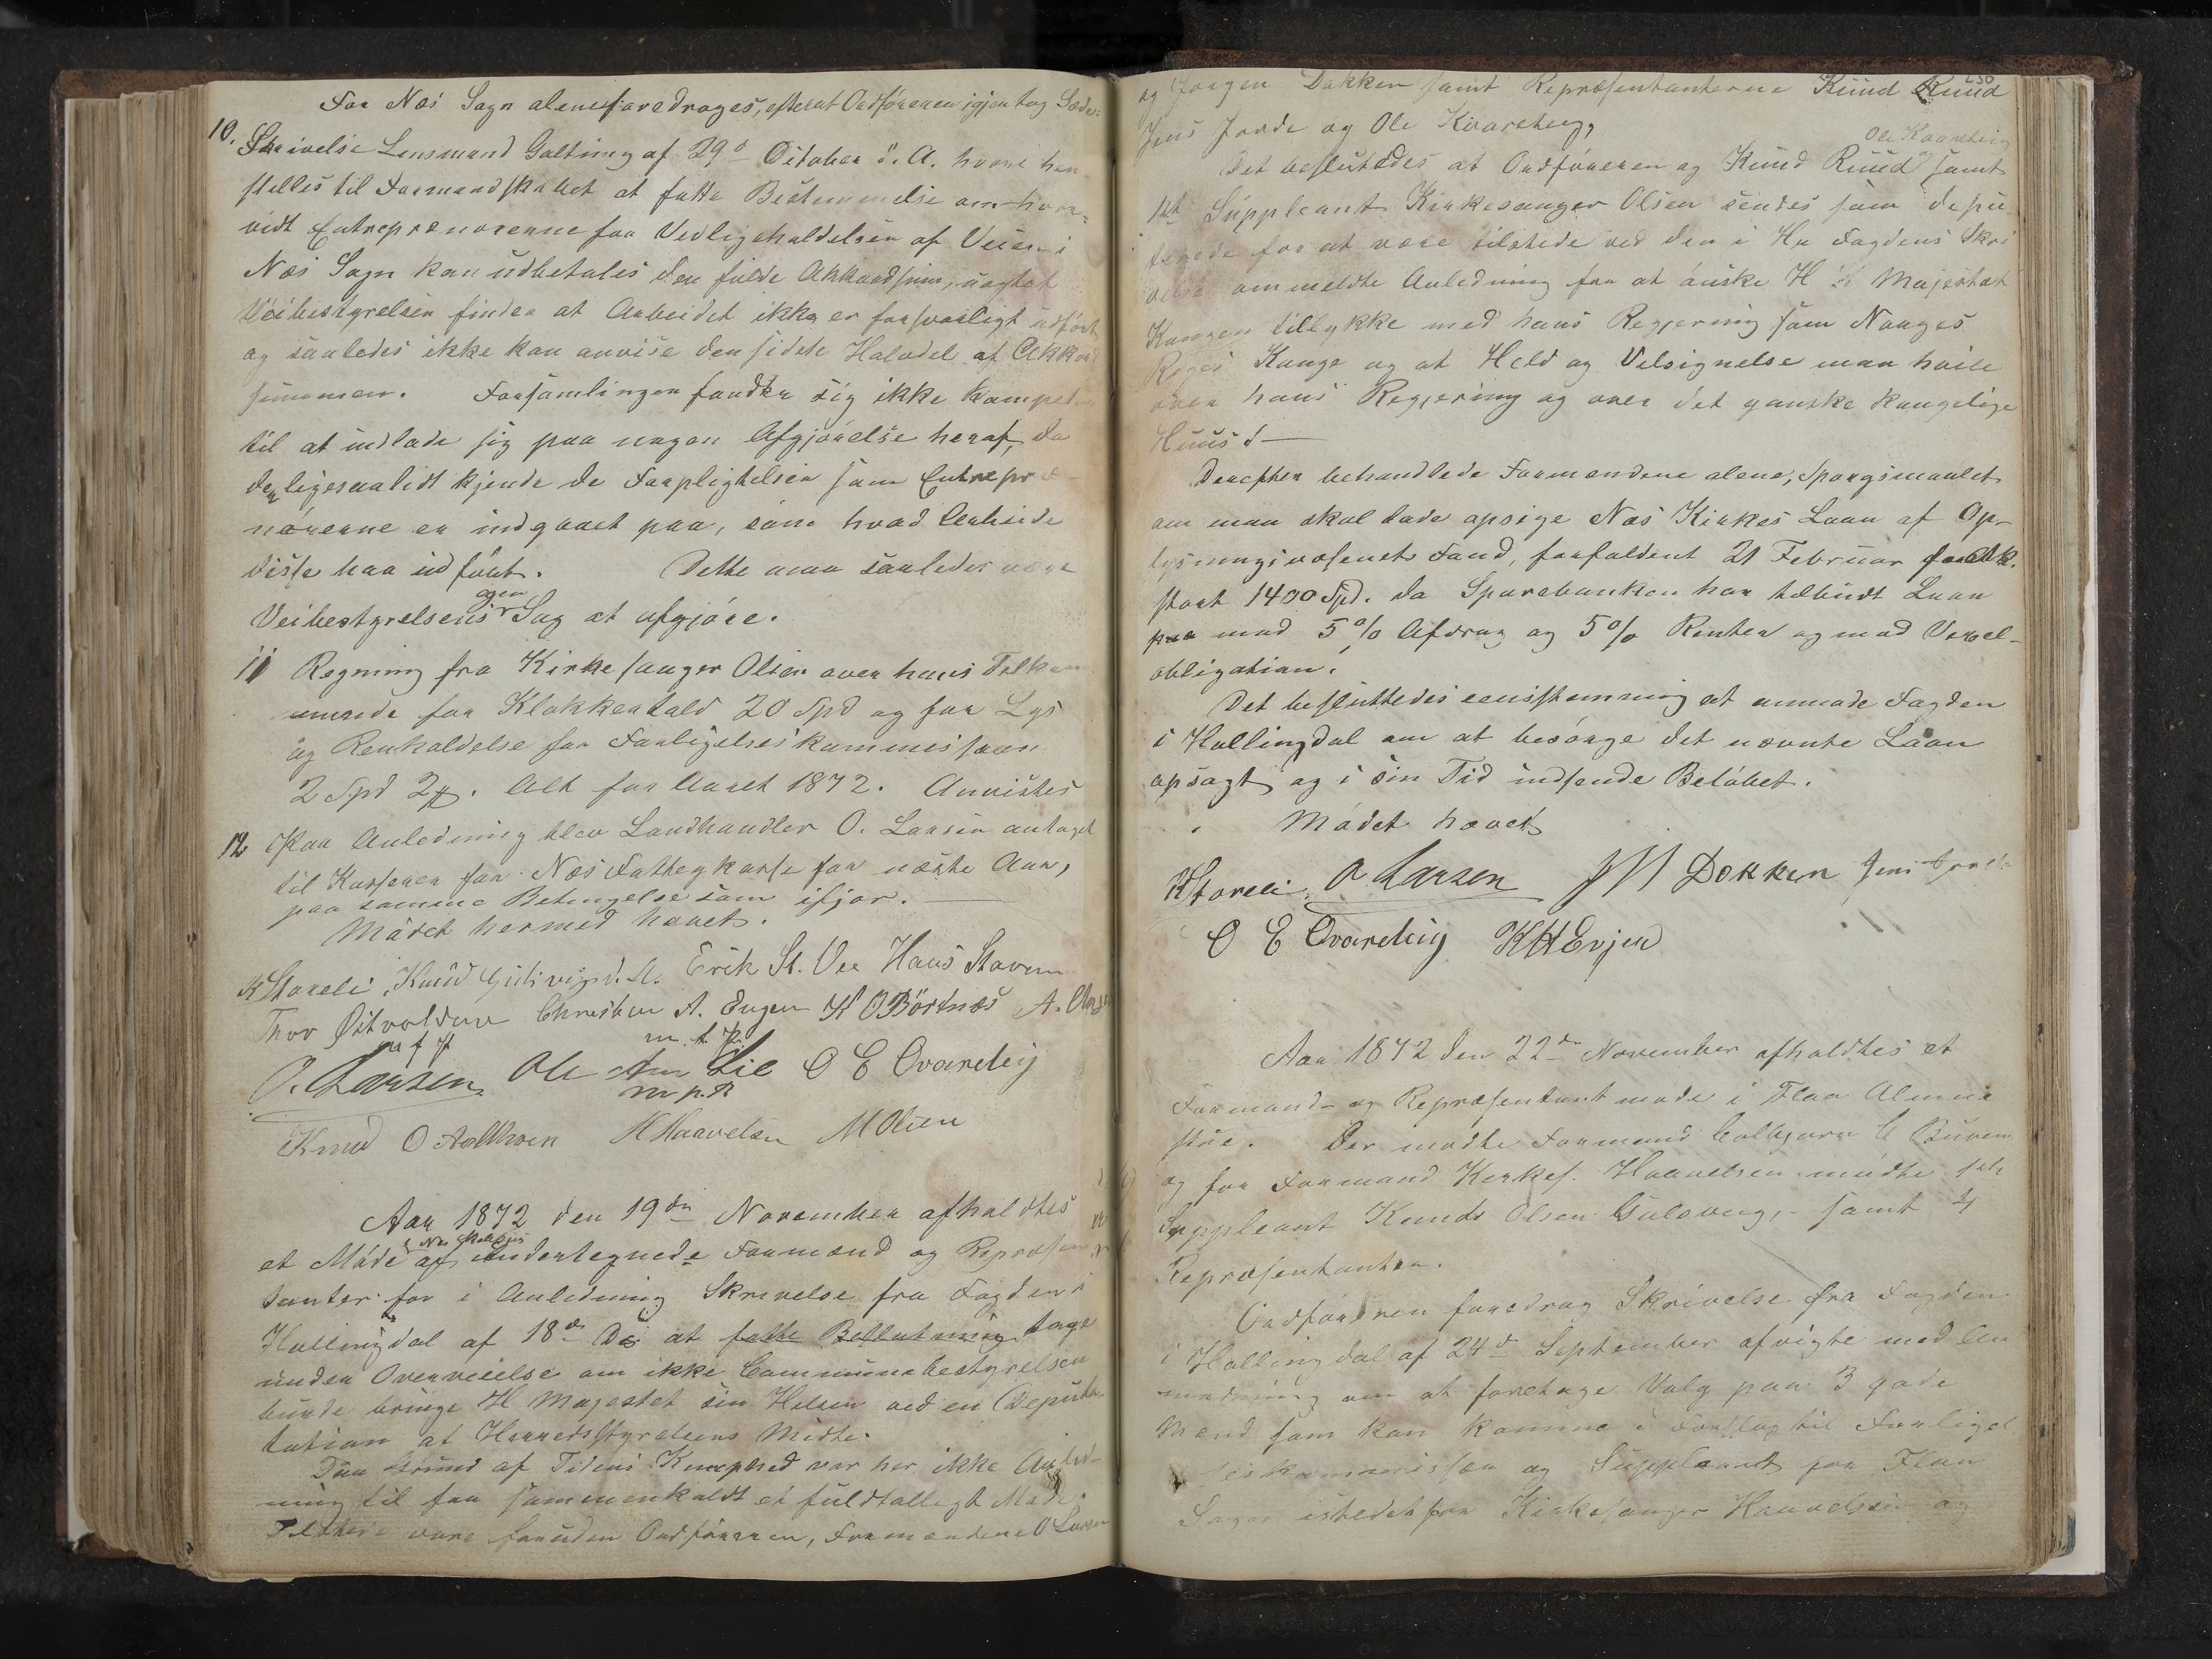 For Næs Sogn alene foredroges, efterat Ordföreren igjentog Sæde:
10. Skrivelse Lensmand Galtung af 29d October d. A. hvori hen
stilles til Formandskabet at fatte Bestemmelse om hvor-
vidt Entreprenörerne for Vedligeholdelsen af Veien i
Næs Sogn kan udbetales den fulde Akkordsum, uagtet
Veibestyrelsen finder at Arbeidet ikke er forsvarligt udfört
og saaledes ikke kan anvise den sidste Halvdel af Akkord
summen. Forsamlingen fandt sig ikke kompet
til at indlade sig paa nogen Afgjörelse heraf, da
den ligesaalidt kjende de Forpligtelser som Entrepre-
nörerne er indgaaet paa, som hvad Arbeide
disse har udfört. Dette maa saaledes være
Veibestyrelsens egen Sag at afgjöre.
11 Regning fra Kirkesanger Olsen over hans Tilkom
mende for Klokkertold 20 Spd og for Lys
og Renholdelse for Forligelseskommissionen
2 Spd 2 . Alt for Aaret 1872. Anvistes
12 Paa Anledning blev Landhandler O. Larsen antaget
til Kasserer for Næs Fattigkasse for næste Aar,
paa samme Betingelse som ifjor.
Mödet hermed hævet.
K Storeli, Knud Erik St. Vee Hans Stavern
Thor Östvolden Christen A. Engen K O Börtnæs A. Olsen
m. f. P.
O. Larsen Ole Lie O E Qvarteig
m p. P
Knud O H Haavelsen M Olsen
Aar 1872 den 19de November afholdtes
et Möde af undertegnede Formænd og Repræsen
tanter for i Anledning Skrivelse fra Fogden i
Hallingdal af 18de Ds at fatte Beslutning tage
under Overveielse om ikke Communebestyrelsen
burde bringe H Majestet sin Hilsen ved en Deputa-
tation af Herredsstyrelsens Midte.
Paa Grund af Tidens Knaphed var her ikke Anled-
ning til faa sammenkaldt et fuldtalligt Möde.
Tilstede vare foruden Ordföreren, Formændene O Larsen
og Jörgen Dokken samt Repræsentanterne Knud Ruud
Jens Jorde og Ole Kvarteig,
Ole Kvarteig
Det besluttedes at Ordföreren og Knud Ruud samt
1ste Suppleant Kirkesanger Olsen sendes som depu-
terede for at være tilstede ved den i Hr Fogdens Skri
velse ommeldte Anledning for at önske H K Majestæt
Kongen tillykke med hans Regjering som Norges
Riges Konge og at Held og Velsignelse maa hvile
over hans Regjering og over det ganske kongelige
Huus!
Derefter behandlede Formændene alene, Spörgsmaalet
om man skal lade opsige Næs Kirkes Laan af Op-
lysningsvæsenets Fond, forfaldent 21 Februar
stort 1400 Spd. da Sparebanken har tilbudt Laan
paa mod 5% Afdrag og 5% Renter og mod Vexel-
obligation.
Det besluttedes eenstemmig at anmode Fogden
i Hallingdal om at besörge det nævnte Laan
opsagt og i sin Tid indsende Belöbet.
Mödet hævet
K Storeli O Larsen Dokken Jens Jorde
O E Qvarteig K H Evjen
Aar 1872 den 22de November afholdtes et
Formand- og Repræsentantmöde i Flaa Almue
stue. Der mödte Formand Colbjörn C Buren
og for Formand Kirkes. Haavelsen mödte 1ste
Suppleant Knud Olsen Gulsvig, - samt 4
Repræsentanter.
Ordföreren foredrog Skrivelse fra Fogden
i Hallingdal af 24d September afvigte med An
modning om at foretage Valg paa 3 gode
Mænd som kan komme i Forslag til Forligel
seskommissær og Suppleant for Flaa
Sogn istedetfor Kirkesanger Haavelsen og